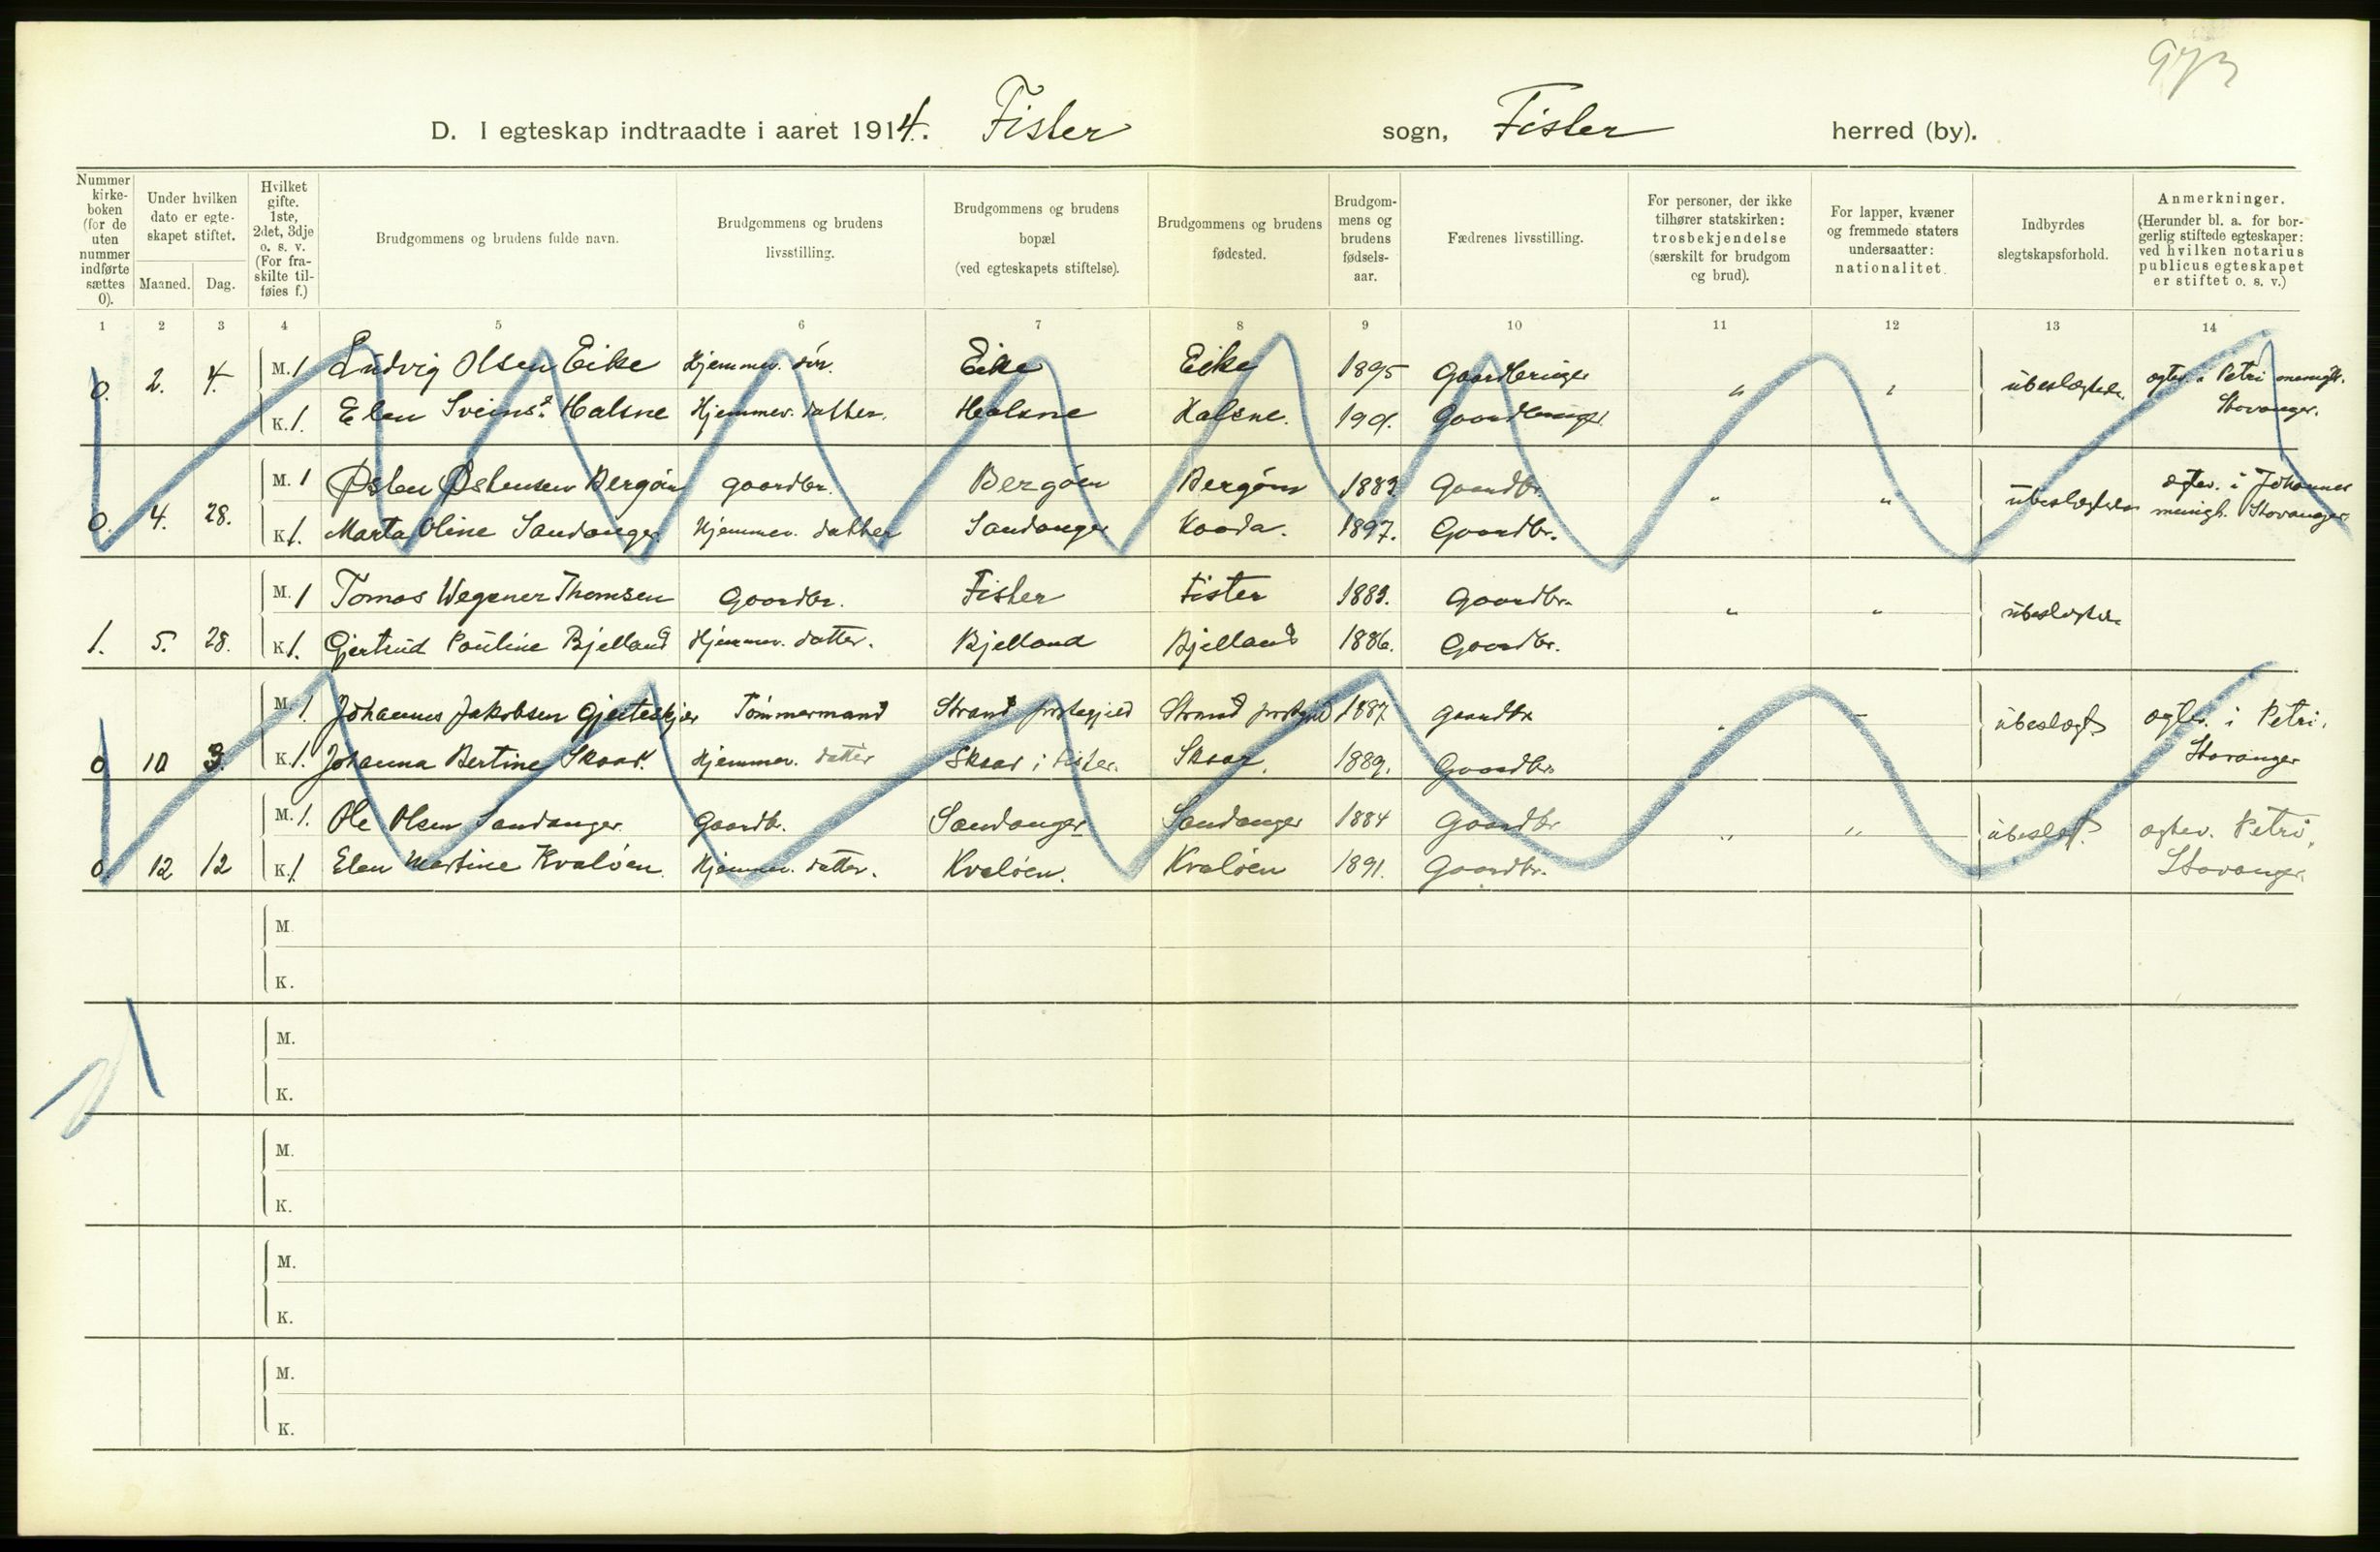 D. I egteskap indtraadte i aaret 1914. Fister sogn, Fister herred (by).
Nummer kirke-boken (for de uten nummer indførte sættes 0).
Under hvilken dato er egte-skapet stiftet.
Maaned. Dag.
Hvilket gifte. 1ste, 2det, 3dje o. s. v. (For fra-skilte til-føies f.)
Brudgommens og brudens fulde navn.
Brudgommens og brudens livsstilling.
Brudgommens og brudens bopæl (ved egteskapets stiftelse).
Brudgommens og brudens fødested.
Brudgom-mens og brudens fødsels-aar.
Fædrenes livsstilling.
For personer, der ikke tilhører statskirken: trosbekjendelse (særskilt for brudgom og brud).
For lapper, kvæner og fremmede staters undersaatter: nationalitet.
Indbyrdes slegtskapsforhold.
Anmerkninger. (Herunder bl. a. for bor-gerlig stiftede egteskaper: ved hvilken notarius publicus egteskapet er stiftet o. s. v.)
1 2 3 4 5 6 7 8 9 10 11 12 13 14
0. 2. 4. M. 1 Ludvig Olsen Eike Hjemmev. søn. Eike Eike 1895 Gaardbruger " " ubeslægtede. egtev. i Petri menigh.
K. 1. Elen Sveinsd. Halsne Hjemmev. datter. Halsne Halsne. Gaardbruger Stavanger.
0. 4. 28. M. 1 Østen Østensen Bergøen gaardbr. Bergøen Bergøen 1883. Gaardbr. " " ubeslægtede egtev. i Johannes
K. 1. Marta Oline Sandanger Hjemmev. datter Sandanger 1897. Gaardbr. menigh. Stavanger
1. 5. 28. M. 1 Tomas Wegener Thomsen Gaardbr. Fister Fister 1883. Gaardbr. " " ubeslægtede
K. 1. Gjertrud Pauline Bjelland Hjemmev. datter. Bjelland Bjelland 1886. Gaardbr.
0 10 3. M. 1. Johannes Jakobsen Tømmermand Strand Strand 1887 gaardbr " - ubeslægt. egtev. i Petri,
K. 1. Johanna Bertine Skaar. Hjemmev. datter Skaar i Fister. Skaar. 1889. Gaardbr. Stavanger
0 12 12 M. 1. Ole Olsen Sandanger Gaardb. Sandanger Sandanger 1884 Gaardbr " " ubeslegt. egtev. Petri,
K. 1 Elen Martine Kvaløen. Hjemmev. datter. Kvaløen. Kvaløen 1891. Gaardbr. Stavanger.
M.
K.
M.
K.
M.
K.
M.
K.
M.
K.